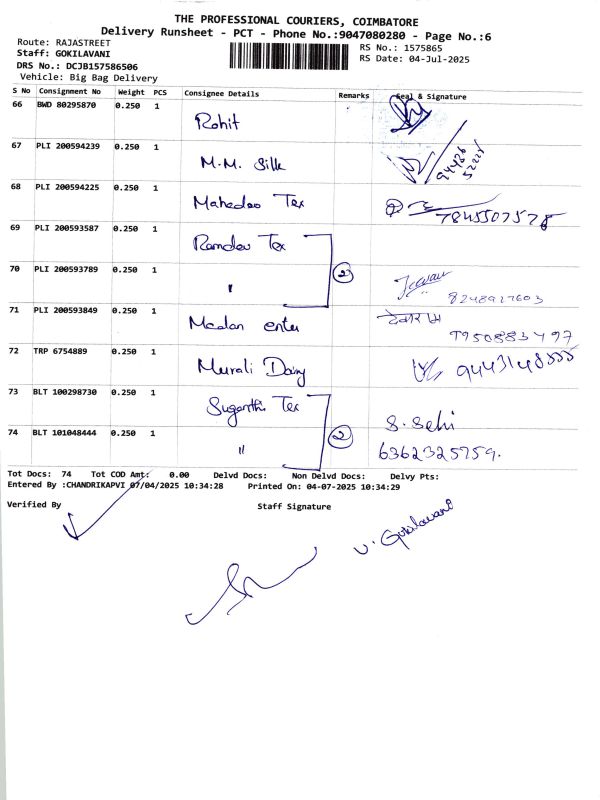 THE PROFESSIONAL COURIERS, COIMBATORE
Delivery Runsheet - PCT - Phone No.:9047080280 - Page No.:6
Route: RAJASTREET
Staff: GOKILAVANI
DRS No.: DCJB157586506
Vehicle: Big Bag Delivery
RS No.: 1575865
RS Date: 04-Jul-2025
S No Consignment No Weight PCS Consignee Details Remarks Seal & Signature
66 BWD 80295870 0.250 1 Rohit
67 PLI 200594239 0.250 1 M.M. Silk
68 PLI 200594225 0.250 1 Mahadeo Tex
69 PLI 200593587 0.250 1 Ramdev Tex
70 PLI 200593789 0.250 1 " 2 8248927603
71 PLI 200593849 0.250 1 Madan enter देवाराम 9950883497
72 TRP 6754889 0.250 1 Murali Dairy
73 BLT 100298730 0.250 1 Suganthi Tex S. Sehi
74 BLT 101048444 0.250 1 " 2 6362325759.
Tot Docs: 74 Tot COD Amt: 0.00 Delvd Docs: Non Delvd Docs: Delvy Pts:
Entered By :CHANDRIKAPVI 07/04/2025 10:34:28 Printed On: 04-07-2025 10:34:29
Verified By Staff Signature
V. Gokilavani